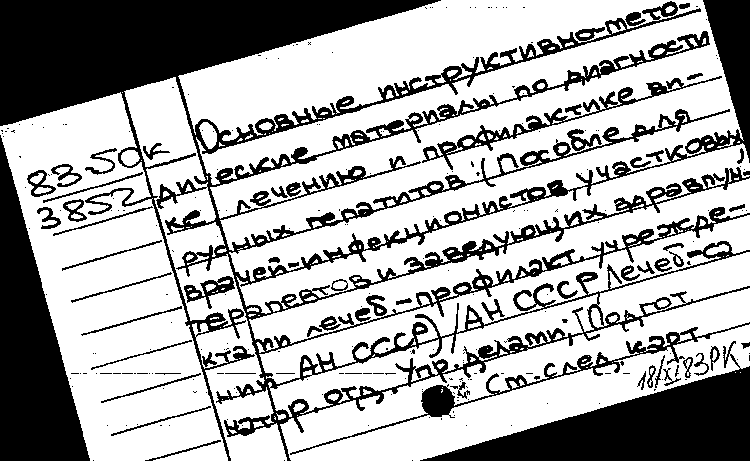 Основные инструктивно-мето-
83-50к дические материалы по диагности
3852 ке, лечению и профилактике ви-
русных гепатитов: (Пособие для
врачей-инфекционистов, участковых
терапевтов и заведующих здравпун-
ктами лечеб.-профилакт. учрежде-
ний АН СССР) / АН СССР Лечеб.-са
натор. отд. Упр. делами; [Подгот.
См. след. карт.
18/XI 83 РК